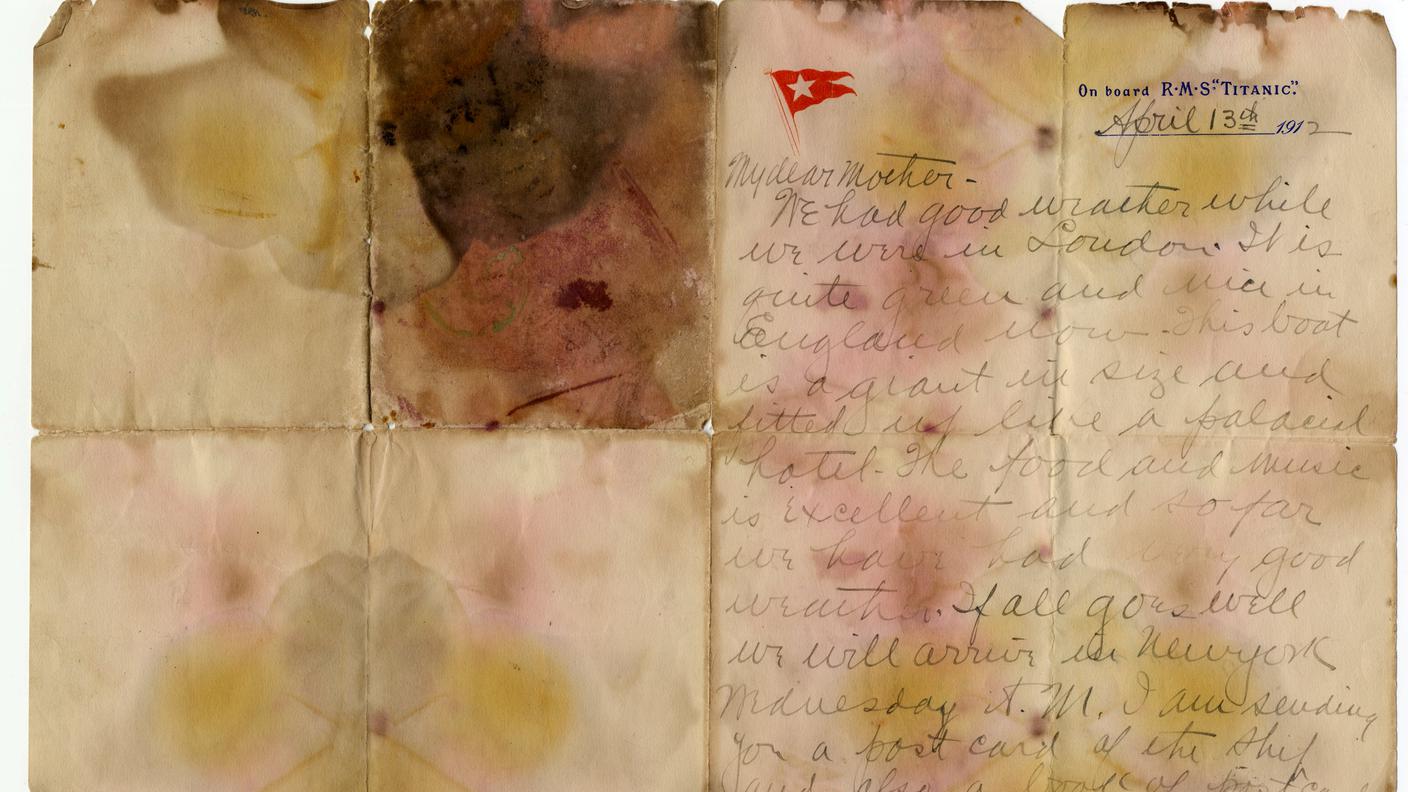 On board R·M·S·"TITANIC."
April 13th 1912
My dear Mother-
We had good weather while
we were in London. It is
quite green and nice in
England now. This boat
is a giant in size and
fitted up like a palacial
hotel. The food and music
is excellent and so far
we have had very good
weather. If all goes well
we will arrive in New york
Wednesday A. M. I am sending
you a post card of the ship
and also a book of